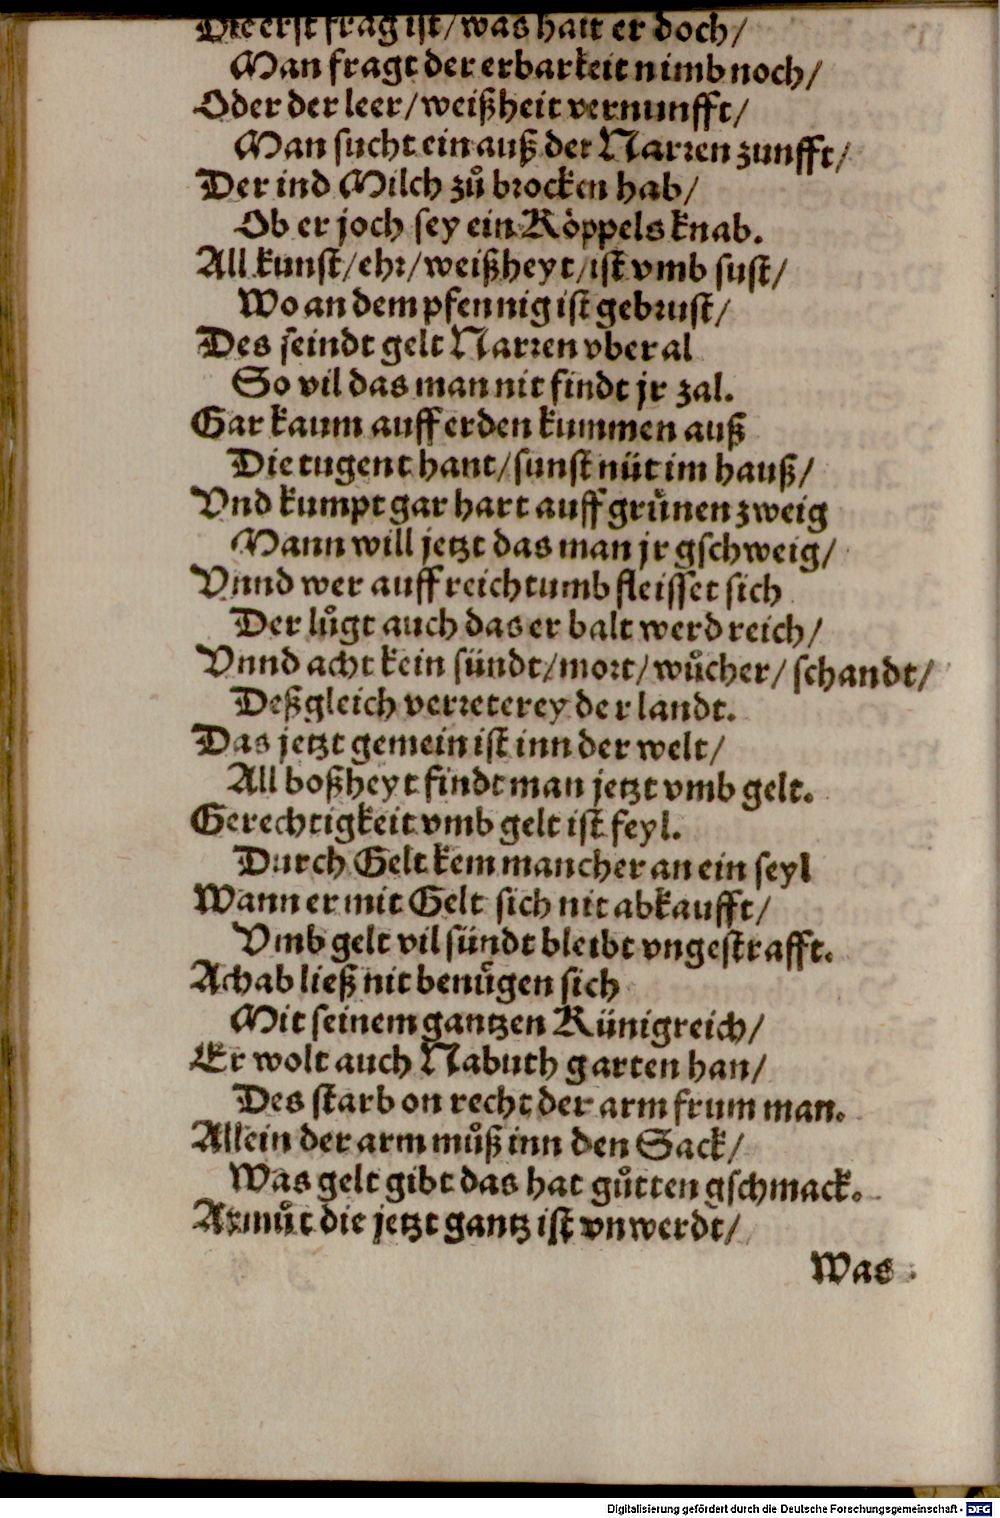 Die erst frag ist/was hatt er doch/
Man fragt der erbarkeit nimb noch/
Oder der leer/weißheit vernunfft/
Man sucht ein auß der Narren zunfft/
Der ind Milch zů brocken hab/
Ob er joch sey ein Röppels knab.
All kunst/ehr/weißheyt/ist vmb sust/
Wo an dem pfennig ist gebrust/
Des seindt gelt Narren vber al
So vil das man nit findt jr zal.
Gar kaum auff erden kummen auß
Die tugent hant/sunst nüt im hauß/
Vnd kumpt gar hart auff grünen zweig
Mann will jetzt das man jr gschweig/
Vnnd wer auff reichtumb fleisset sich
Der lůgt auch das er balt werd reich/
Vnnd acht kein sündt/mort/wůcher/schandt/
Deßgleich verreterey der landt.
Das jetzt gemein ist inn der welt/
All boßheyt findt man jetzt vmb gelt.
Gerechtigkeit vmb gelt ist feyl.
Durch Gelt kem mancher an ein seyl
Wann er mit Gelt sich nit abkaufft/
Vmb gelt vil sündt bleibt vngestrafft.
Achab ließ nit benügen sich
Mit seinem gantzen Künigreich/
Er wolt auch Nabuth garten han/
Des starb on recht der arm frum man.
Allein der arm můß inn den Sack/
Was gelt gibt das hat gůtten gschmack.
Armůt die jetzt gantz ist vnwerdt/
Was
Digitalisierung gefördert durch die Deutsche Forschungsgemeinschaft - DFG